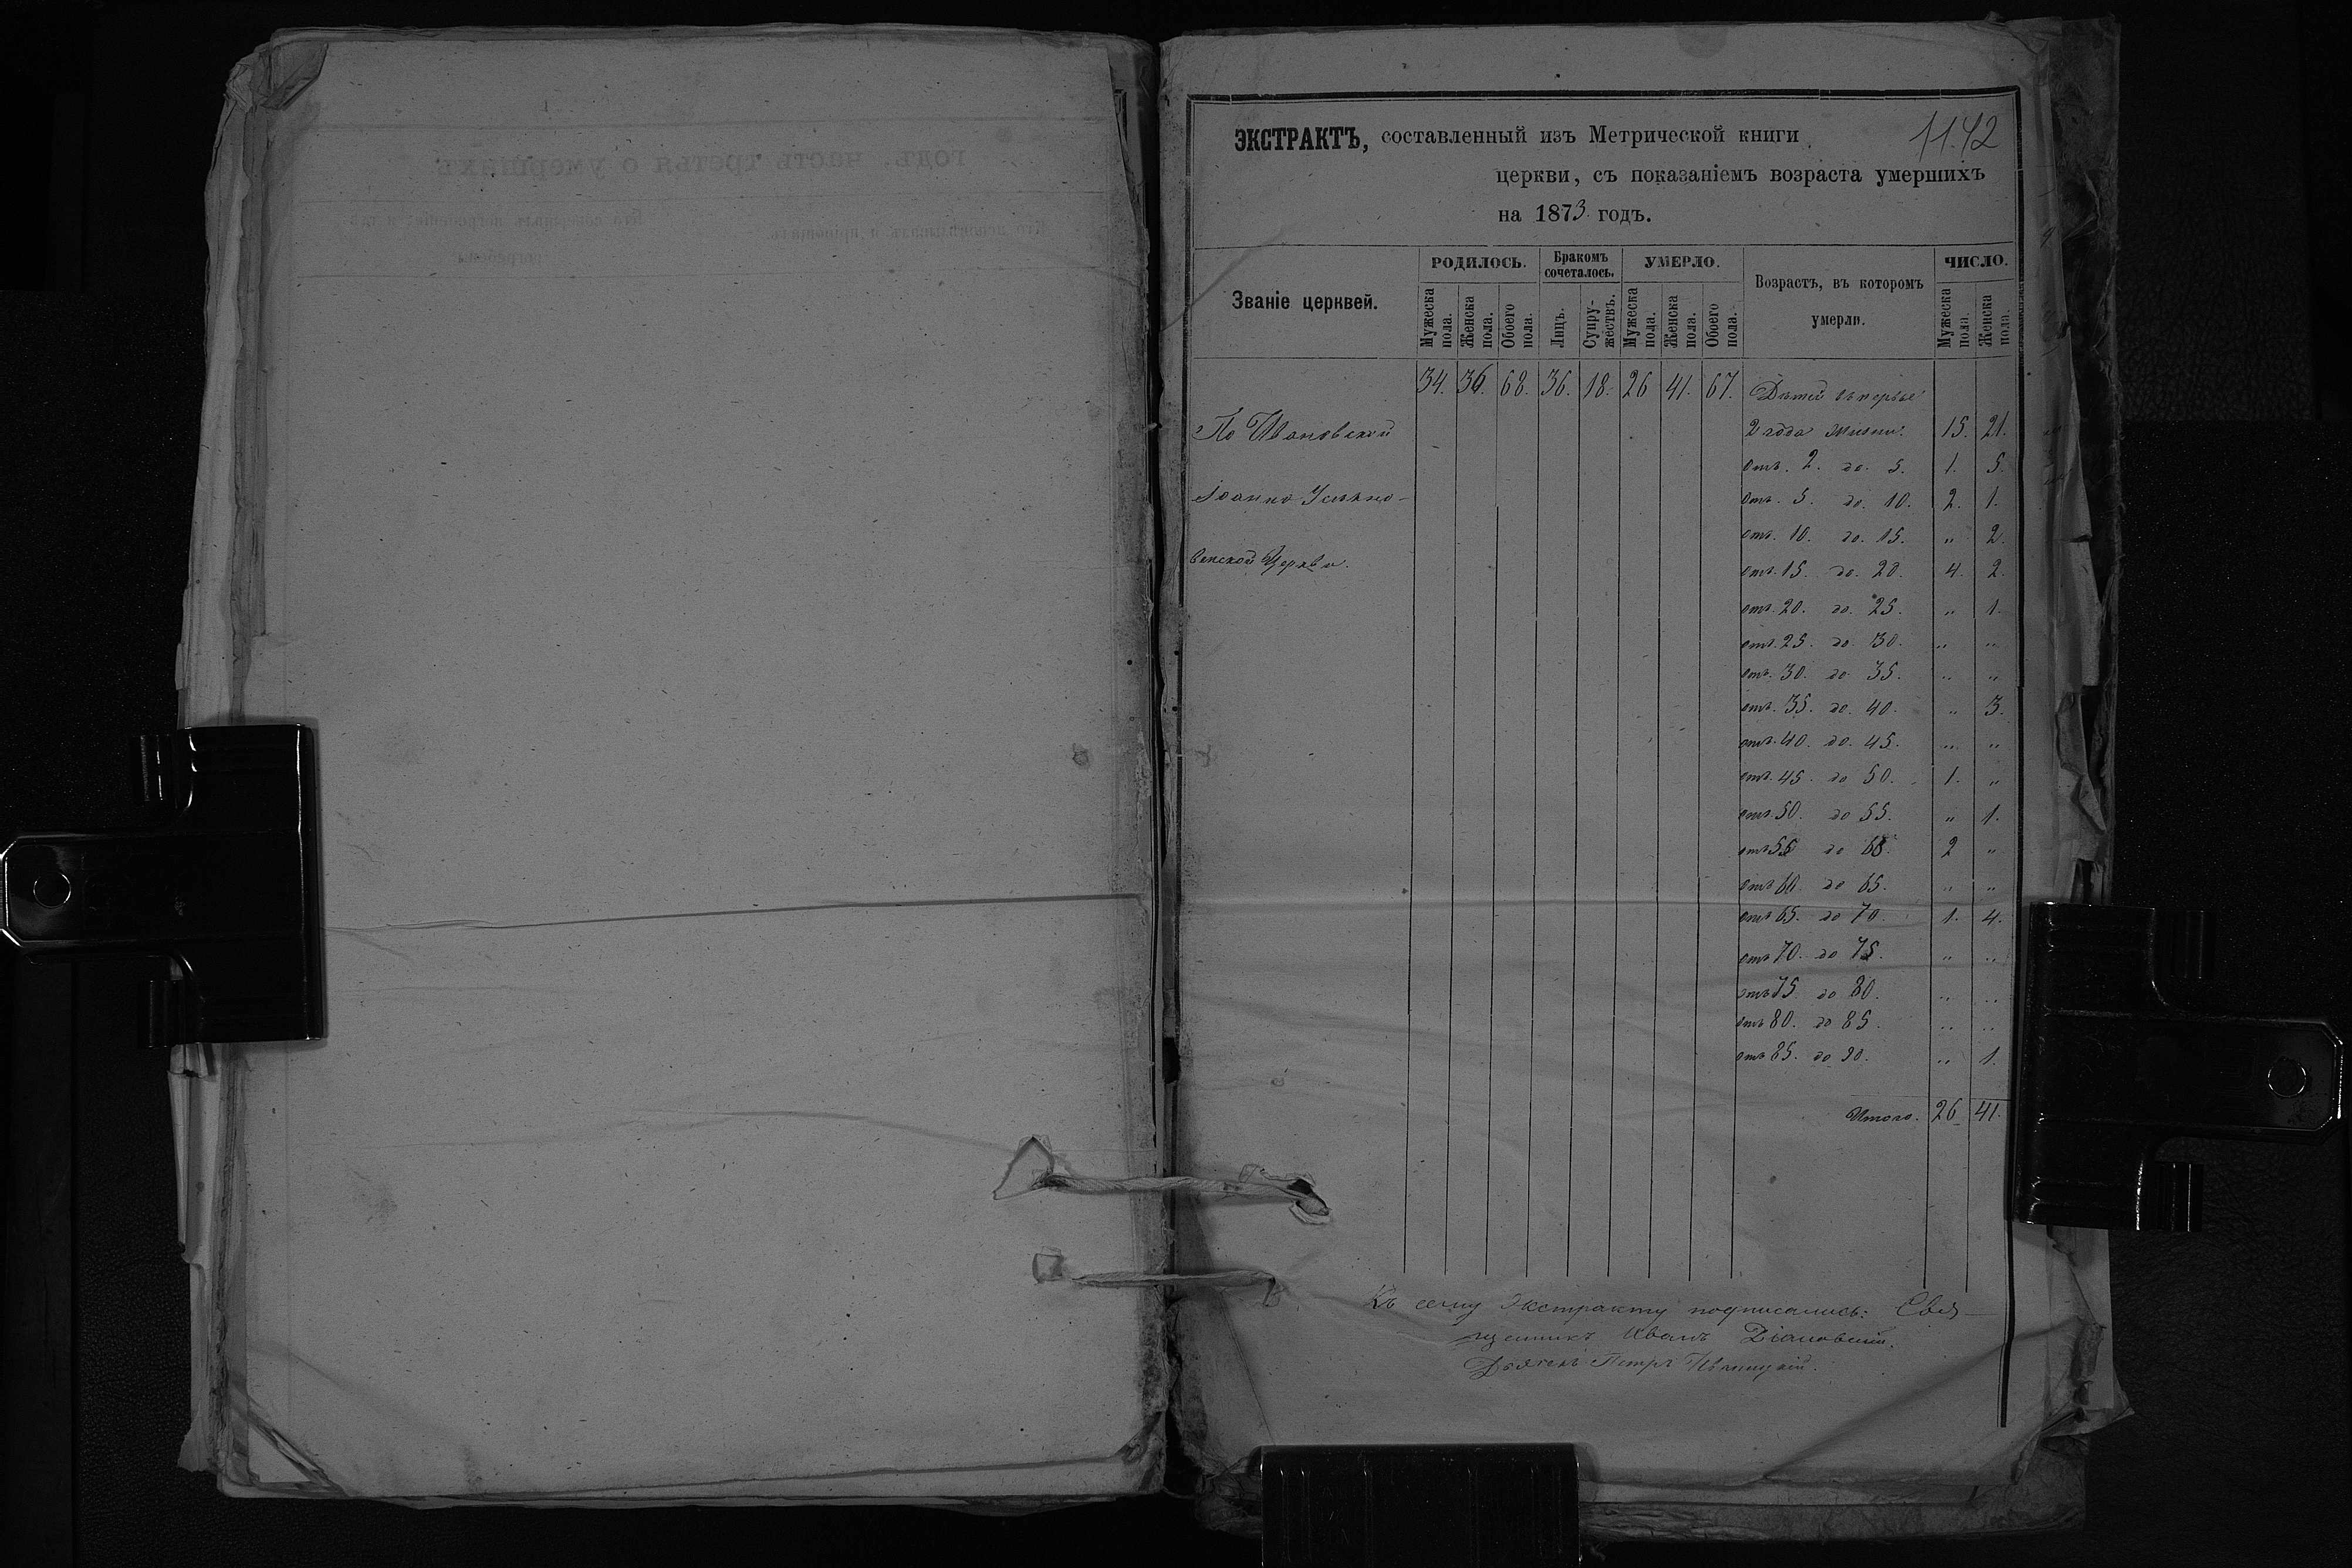 1142
ЭКСТРАКТЪ, составленный изъ Метрической книги
церкви, съ показаніемъ возраста умершихъ
на 1873 годъ.
Званіе церквей. РОДИЛОСЬ. Бракомъ сочеталось. УМЕРЛО. Возрастъ, въ которомъ умерли. ЧИСЛО.
Мужеска пола. Женска пола. Обоего пола. Лицъ. Супружествъ. Мужеска пола. Женска пола. Обоего пола. Мужеска пола. Женска пола.
34. 36. 68. 36. 18. 26 41. 67. Дѣтей въ первые
По Ивановской 2 года жизни. 15. 21.
отъ. 2. до. 5. 1. 5.
Іоанно Усѣкно- отъ. 5. до. 10. 2. 1.
отъ. 10. до. 15. „ 2.
венской Церкви. отъ. 15. до. 20. 4. 2.
отъ. 20. до. 25. „ 1.
отъ. 25. до. 30. „ „
отъ. 30. до 35. „ „
отъ. 35. до. 40. „ 3.
отъ. 40. до. 45. „ „
отъ. 45. до 50. 1. „
отъ 50. до 55. „ 1.
отъ 55 до 60. 2 „
отъ 60. до 65. „ „
отъ 65. до 70. 1. 4.
отъ 70. до 75. „ „
отъ 75 до 80. „ „
отъ 80. до 85. „ „
отъ 85. до 90. „ 1.
Итого. 26 41.
Къ сему Экстракту подписались: Свя-
щенникъ Иванъ Діановскій.
Дьячекъ Петръ
годъ, часть третья о умершихъ
Кто исповѣдывалъ и пріобщалъ.
Кто совершалъ погребеніе и гдѣ погребены.